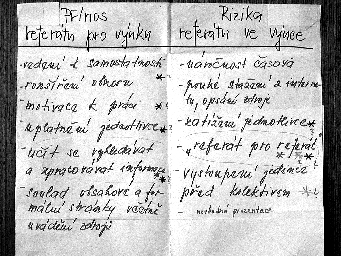 Přínos
referátu pro výuku
- vedení k samostatnosti
- rozšíření obzoru
- motivace k práci *
- uplatnění jednotlivce *
- učit se vyhledávat
a zpracovávat informace *
- soulad obsahové a for-
mální stránky včetně
uvádění zdrojů
Rizika
referátu ve výuce
- náročnost časová
- pouhé stažení z interne-
tu, opsání zdroje
- zatížení jednotlivce *
- „referát pro referát“
* * *
- vystoupení jedince
před kolektivem *
- nevhodná prezentace